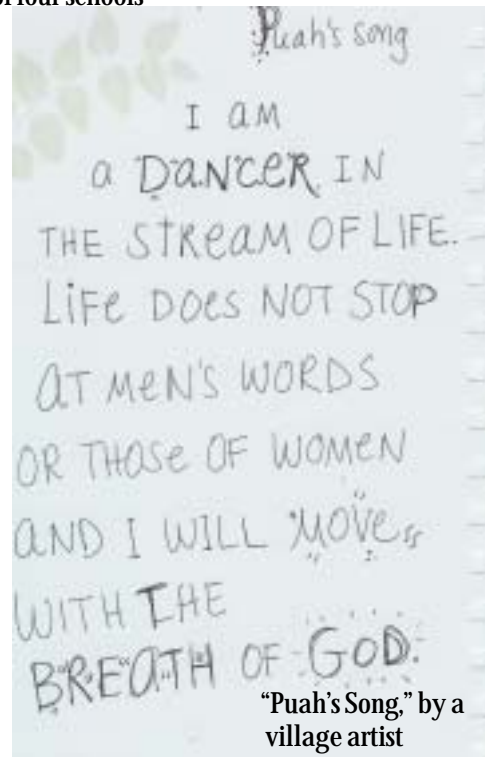 of four schools
Puah's song
I am
a DaNCeR IN
THE STReaM OF LIFE.
LiFe DOes NOT STOP
aT MeN'S WORDS
OR THOSe OF WOMeN
aND I WILL MOVe
WITH THE
BREaTH OF GOD.
"Puah's Song," by a
village artist